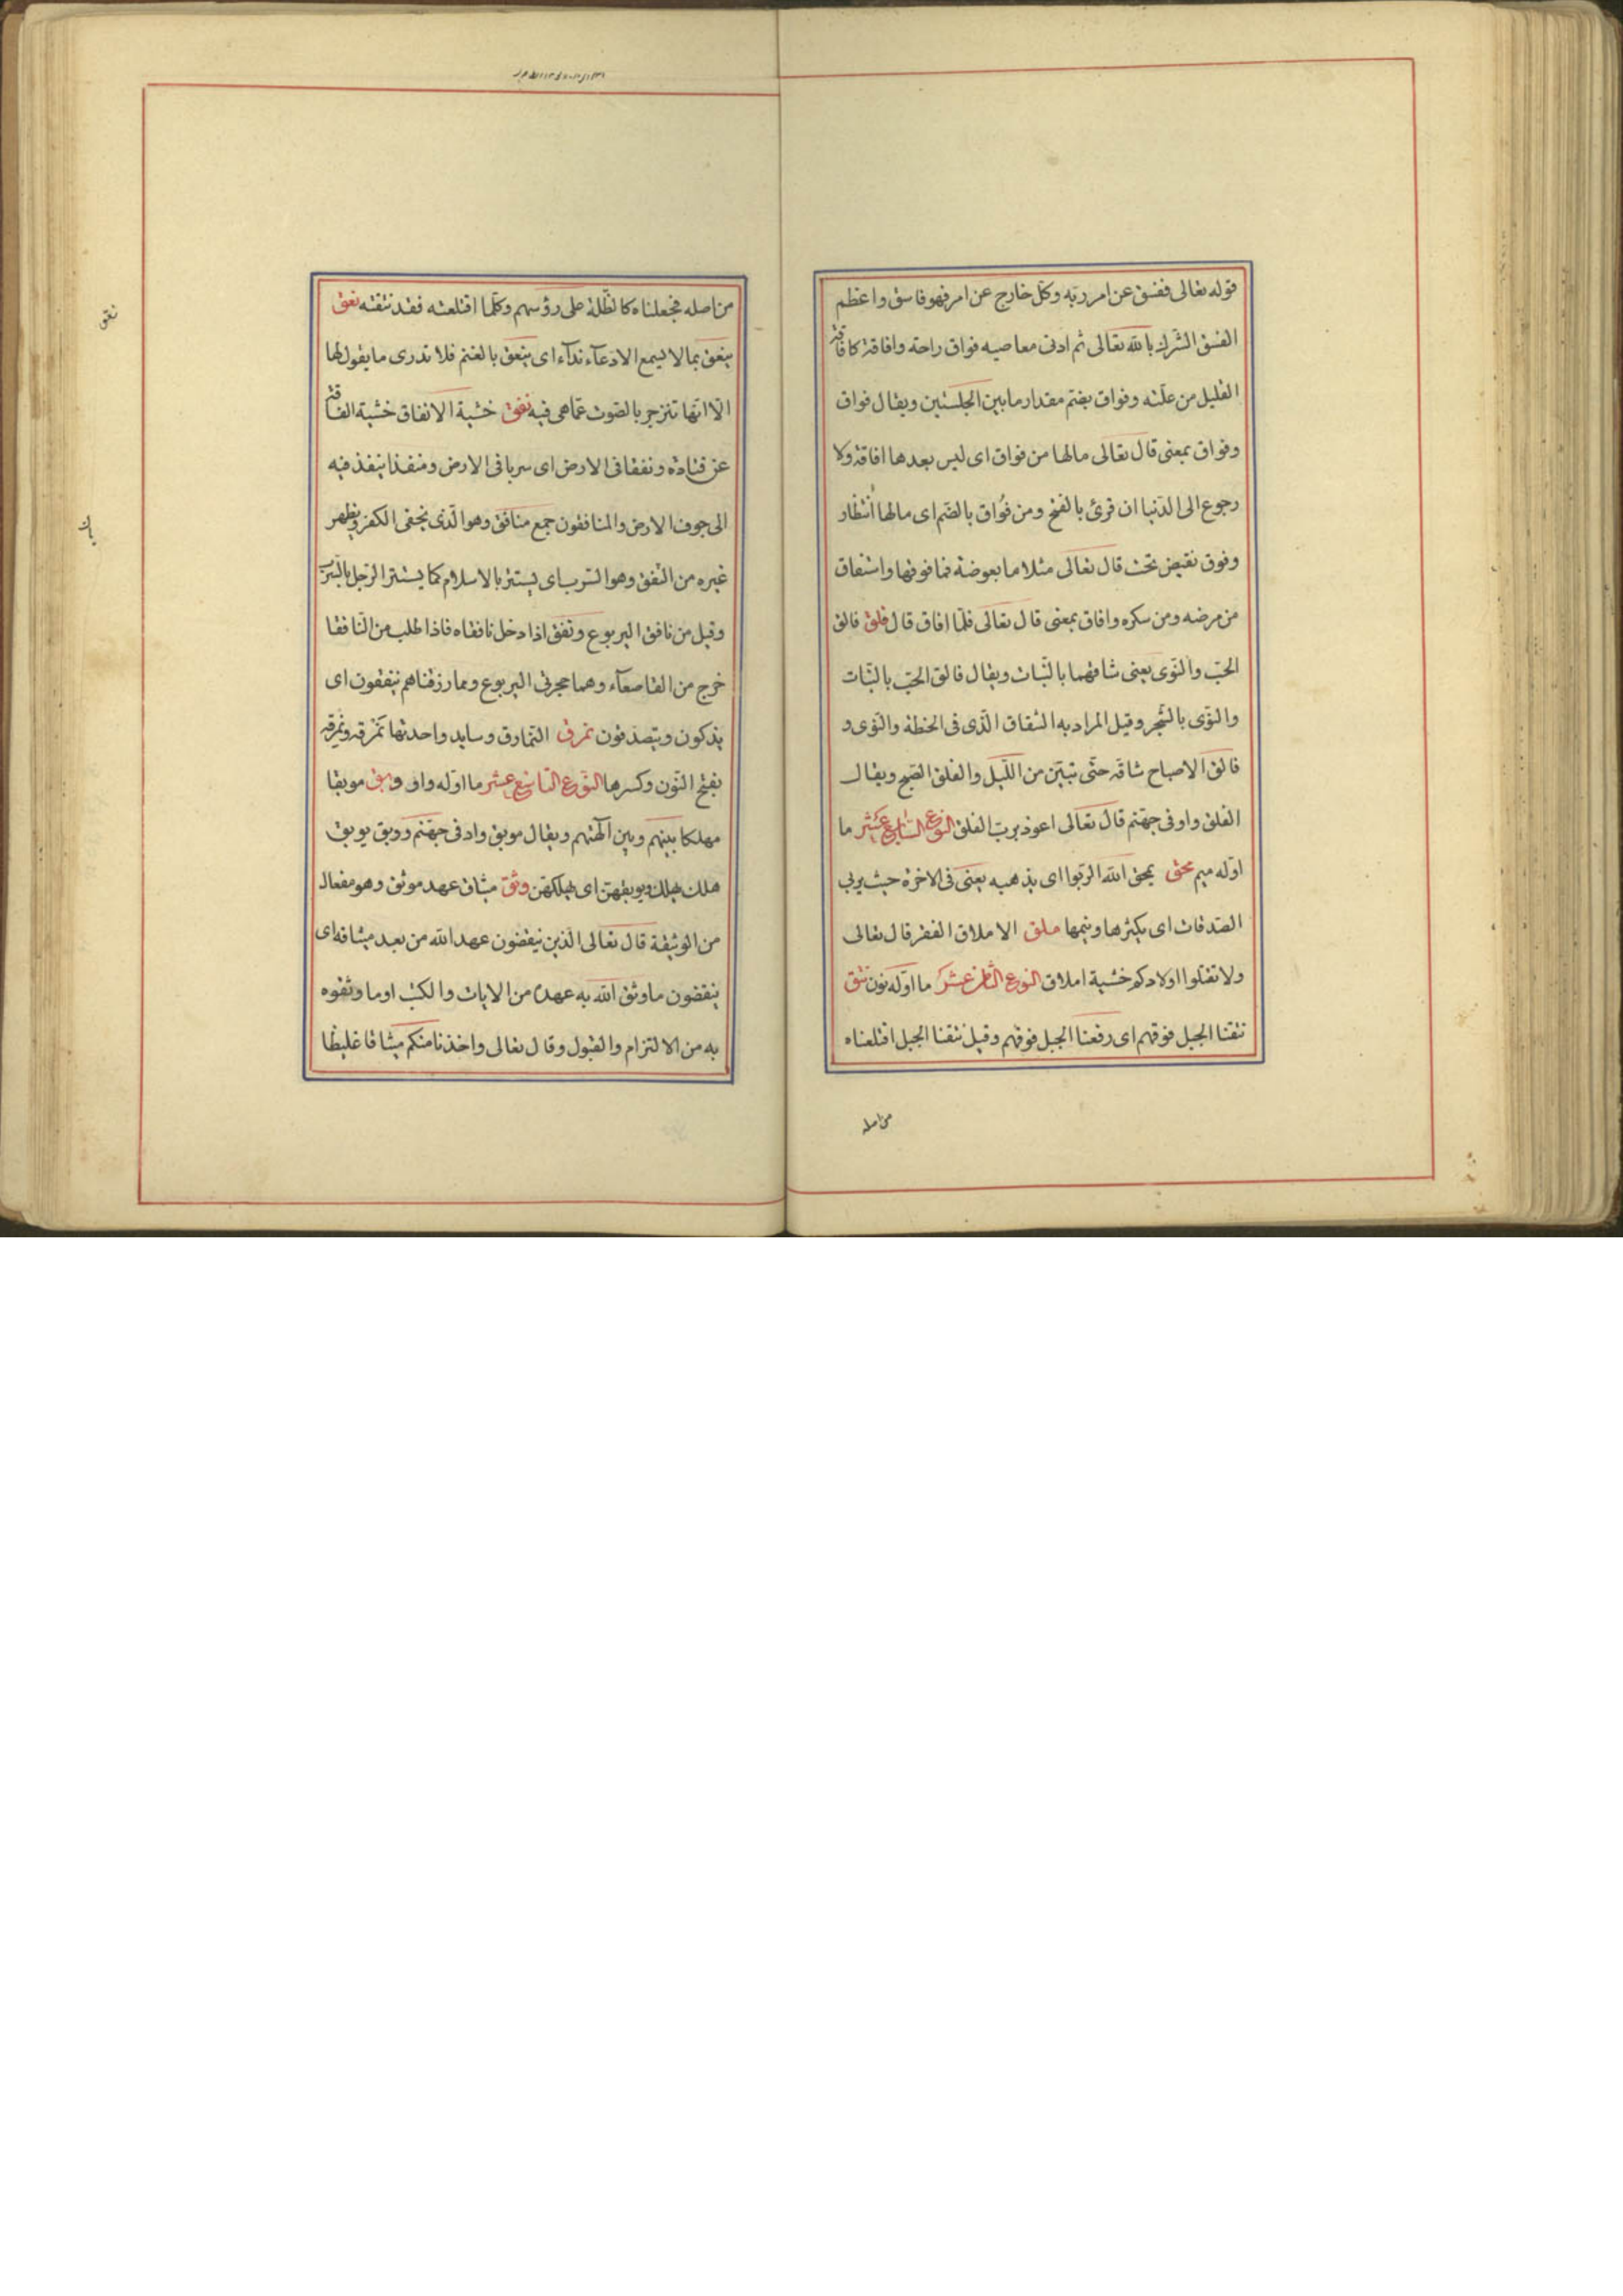 قوله تعالى ففسق عن امر ربّه وكلّ خارج عن امر فهو فاسق واعظم
الفسق الشّرك بالله تعالى ثم ادنى معاصيه فواق راحة وافاقة كافاقة
العليل من علّته وفواق بضم مقدار ما بين الجلستين ويقال فواق
وفواق بمعنى قال تعالى مالها من فواق اى ليس بعدها افاقة ولا
رجوع الى الدّنيا ان قرئ بالفتح ومن فُواق بالضّم اى مالها انتظار
وفوق نقيض تحت قال تعالى مثلا ما بعوضة فما فوقها واستفاق
من مرضه ومن سكره وافاق بمعنى قال تعالى فلمّا افاق قال فلق فالق
الحبّ والنّوى يعنى شاقهما بالنّبات ويقال فالق الحبّ بالنّبات
والنّوى بالشّجر وقيل المراد به الشقاق الّذى فى الحنطة والنّوى و
فالق الاصباح شاقّه حتّى تبيّن من اللّيل والفلق الصّبح ويقال
الفلق واو فى جهنّم قال تعالى اعوذ بربّ الفلق النوع السّابع عشر ما
اوّله ميم محق يمحق الله الربّوا اى يذهب به يعنى فى الاخرة حيث يربى
الصّدقات اى يكثرها وينيمها ملق الاملاق الفقر قال تعالى
ولا تقتلوا اولادكم خشية املاق النوع الثّامن عشر ما اوّله نون نتق
نتقنا الجبل فوقهم اى رفعنا الجبل فوقهم وقيل نتقنا الجبل اقتلعناه
من اصله
من اصله فجعلناه كالظّلة على رؤسهم وكلّما اقتلعته فقد نتقته نعق
ينعق بما لا يسمع الا دعآء ندآء اى ينعق بالغنم فلا تدرى ما يقول لها
الّا انّها تنزجر بالصّوت عمّا هى فيه نفق خشية الانفاق خشية الفاقة
عن قتادة ونفقا فى الارض اى سربا فى الارض ومنفذا ينفذ فيه
الى جوف الارض والمنافقون جمع منافق وهو الّذى يخفى الكفر ويظهر
غيره من النّفق وهو السّرب اى يستتر بالاسلام كما يستتر الرّجل بالسّرب
وقيل من نافق اليربوع ونفق اذا دخل نافقاه فاذا طلب من النّافقا
خرج من القاصعآء وهما حجرتى اليربوع ومما رزقناهم ينفقون اى
يذكون ويتصدّقون نمرق النّمارق وسايد واحدتها نمرقه ونمرقه
بفتح النّون وكسرها النّوع التاسع عشر ما اوّله واو وبق موبقا
مهلكا بينهم وبين آلهتهم ويقال موبق واد فى جهنّم ووبق يوبق
هلك يهلك ويوبقهنّ اى يهلكهنّ وثق ميثاق عهد موثق وهو مفعال
من الوثيقة قال تعالى الّذين ينقضون عهد الله من بعد ميثاقه اى
ينقضون ما وثق الله به عهده من الايات والكتب او ما وثقوه
به من الالتزام والقبول وقال تعالى واخذنا منكم ميثاقا غليظا
نعق